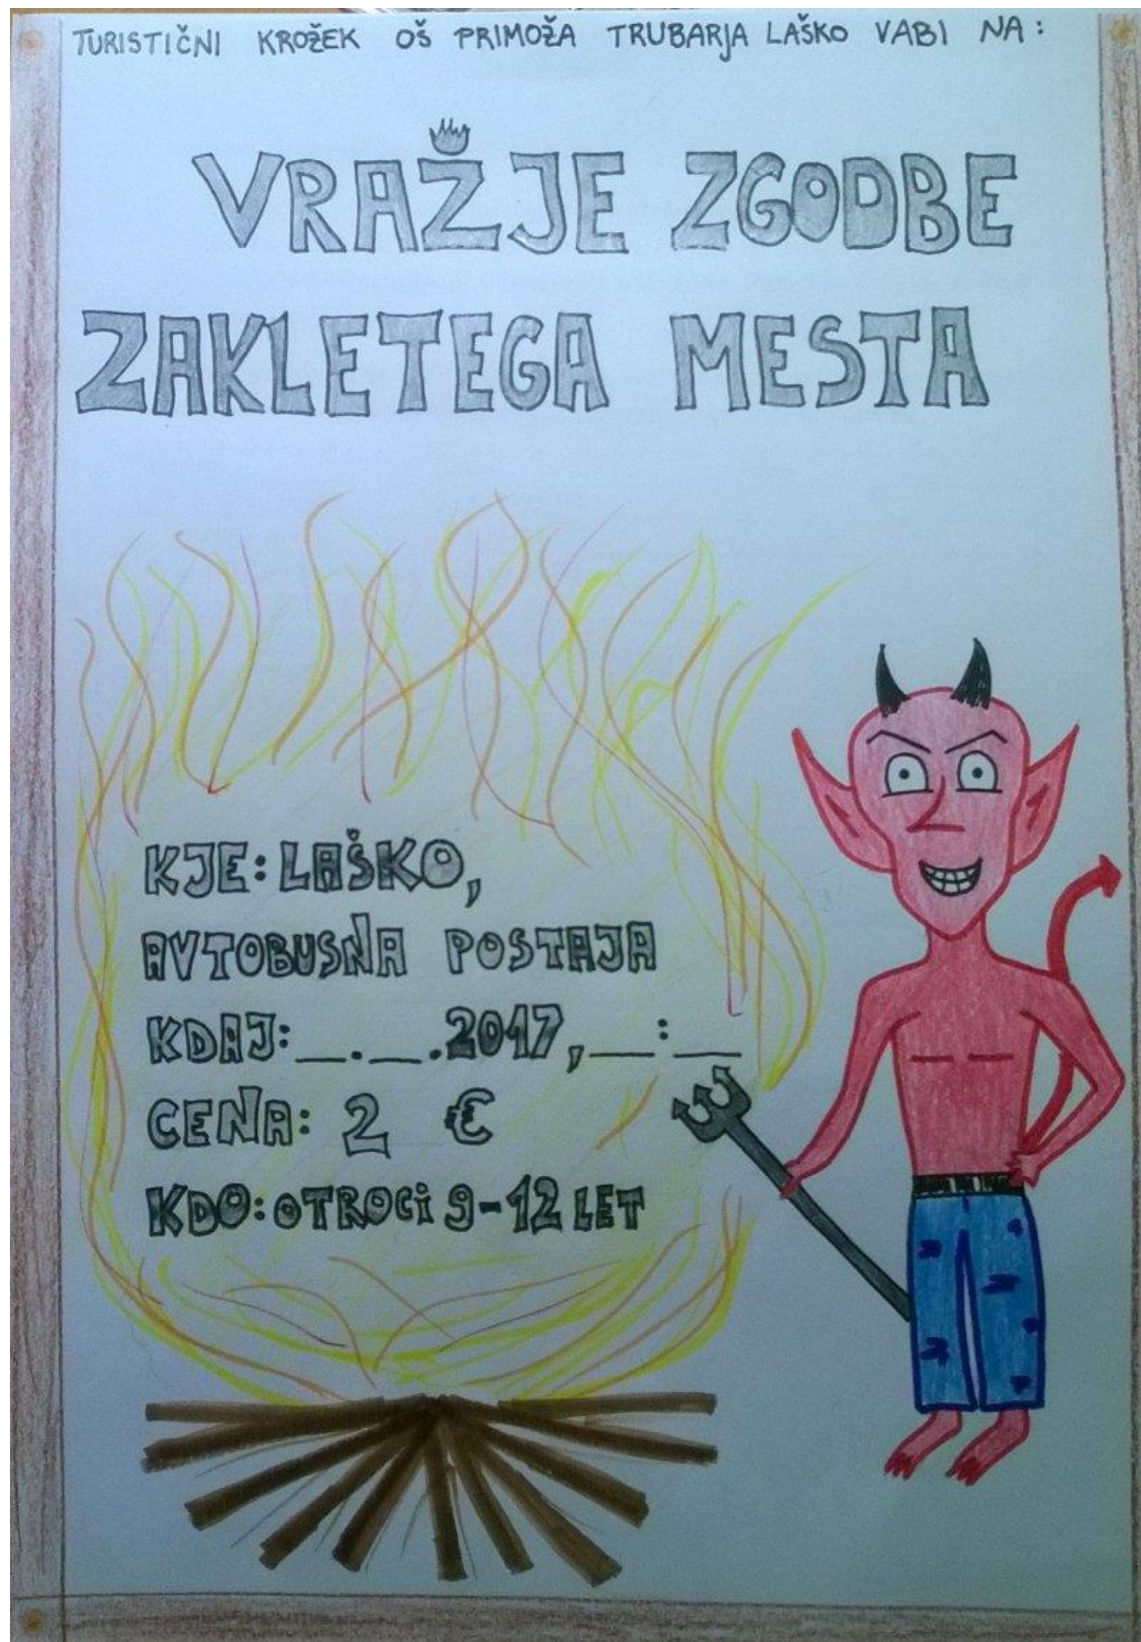 TURISTIČNI KROŽEK OŠ PRIMOŽA TRUBARJA LAŠKO VABI NA:
VRAŽJE ZGODBE
ZAKLETEGA MESTA
KJE: LAŠKO,
AVTOBUSNA POSTAJA
KDAJ: __.__.2017, __:__
CENA: 2 €
KDO: OTROCi 9-12 LET